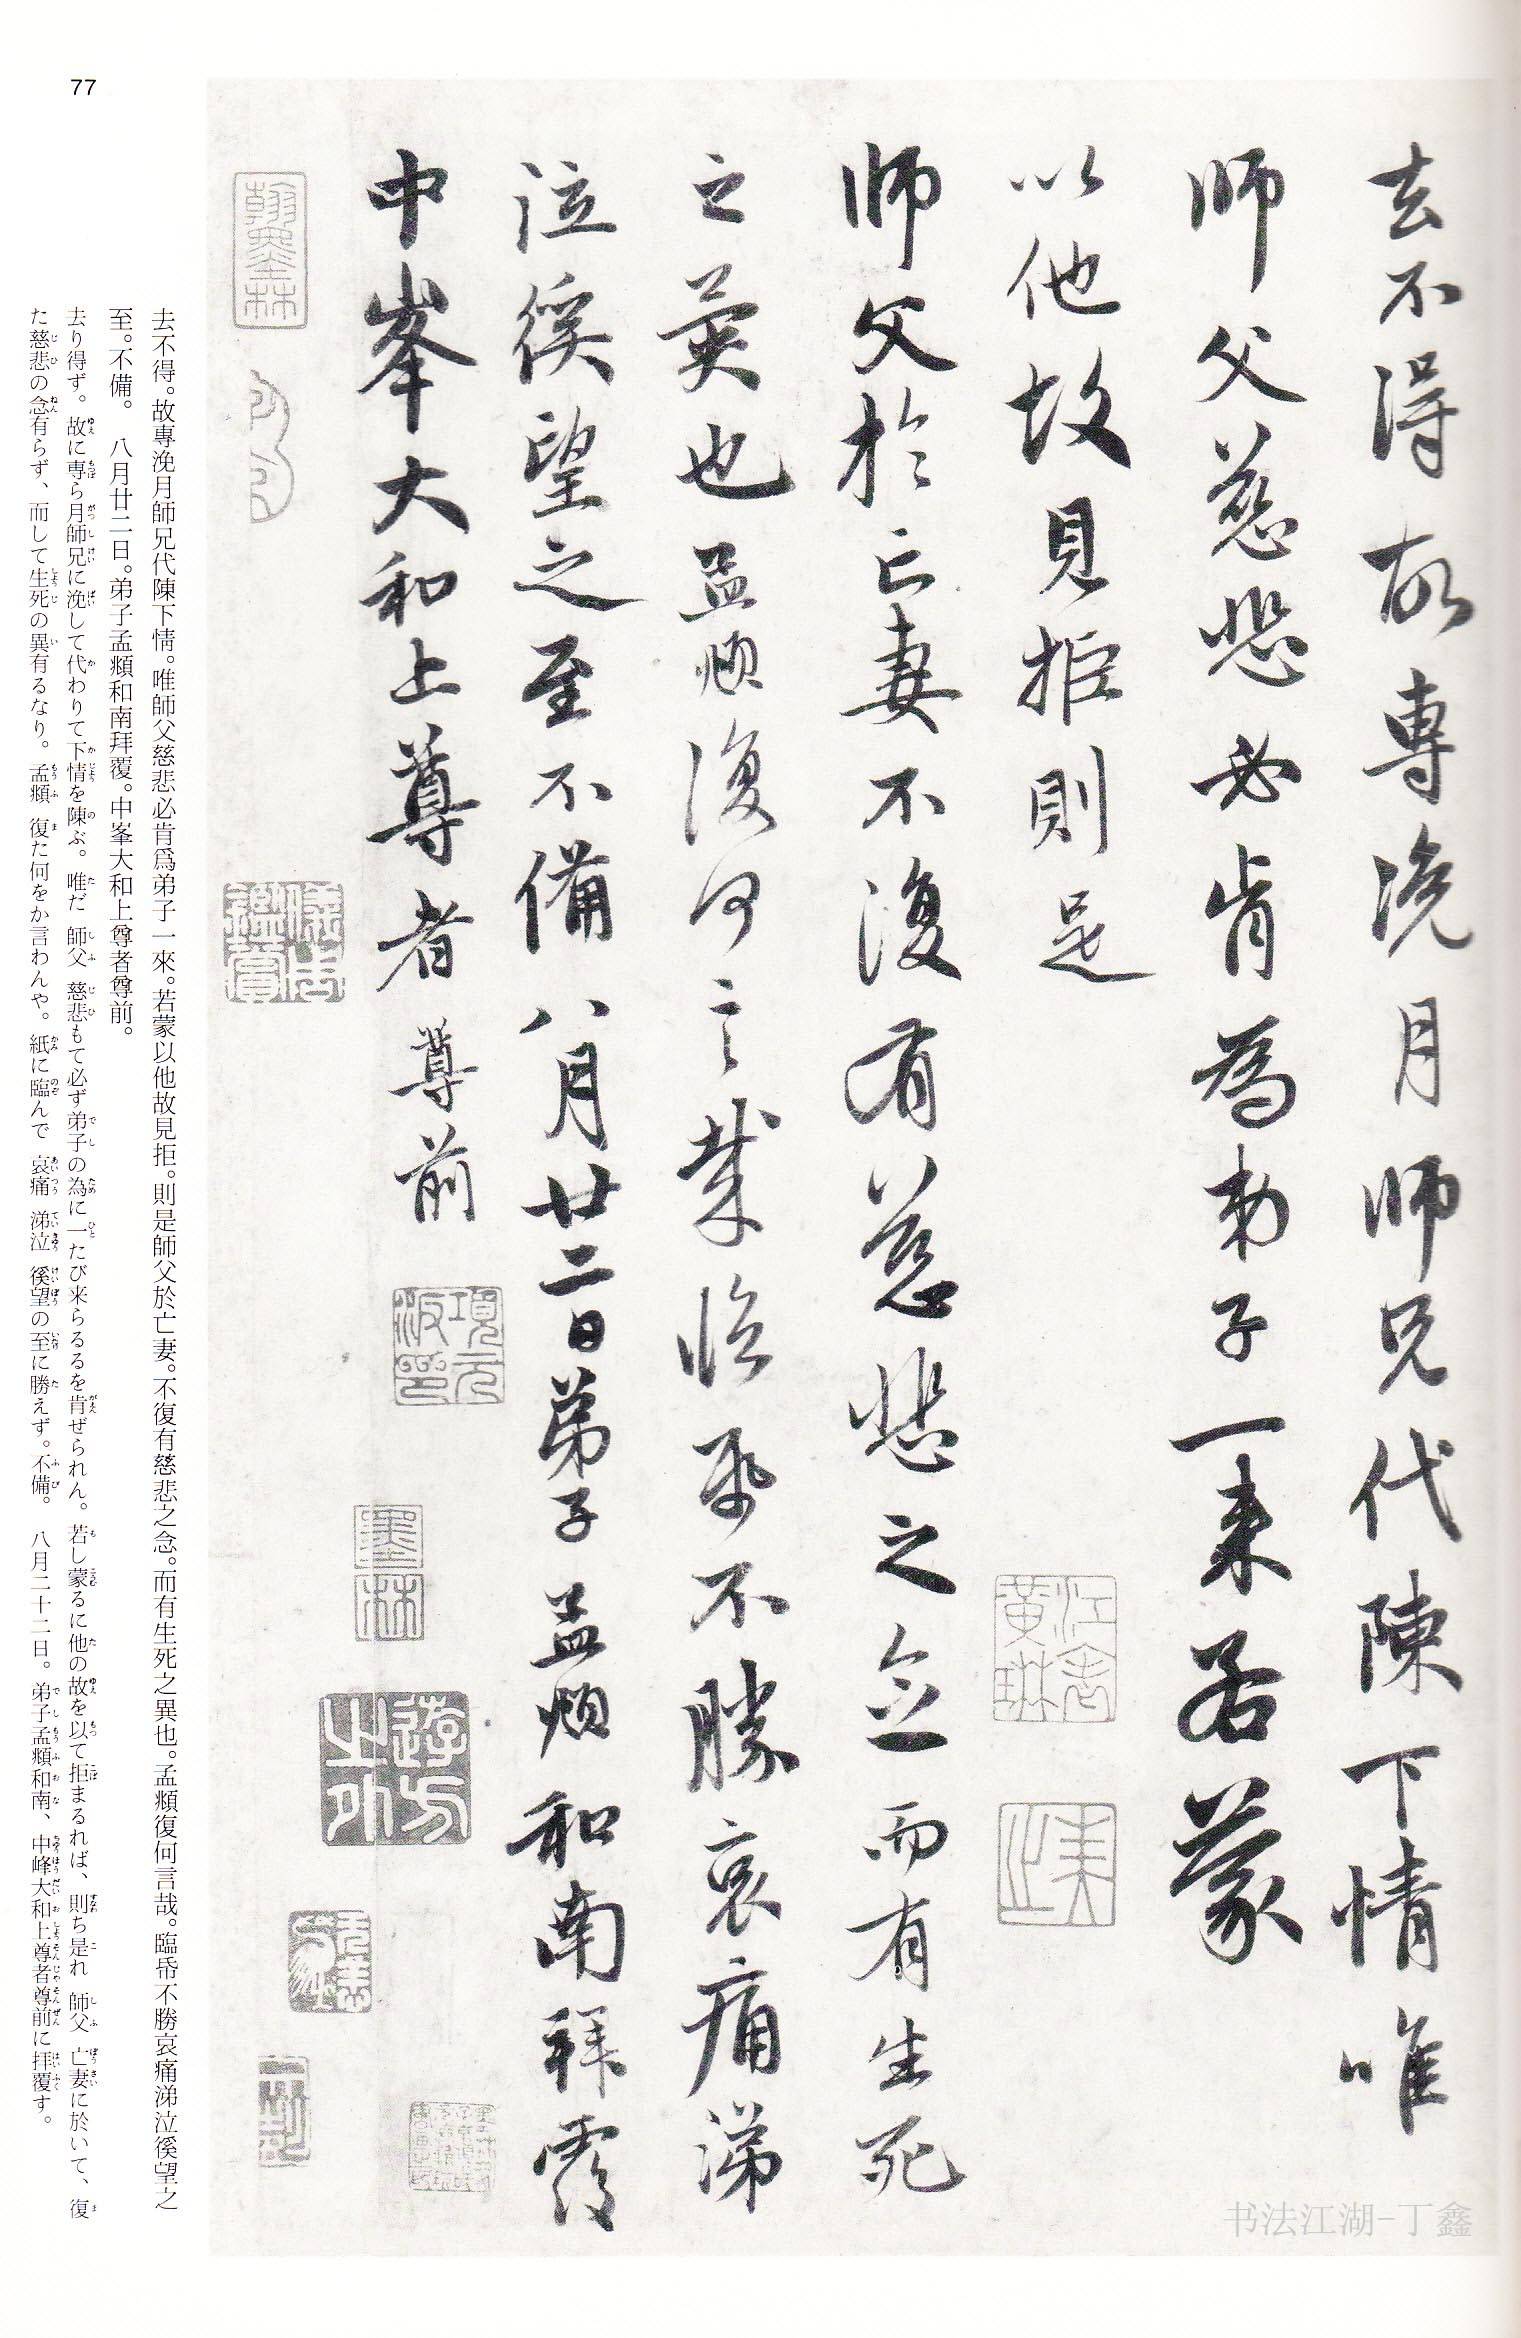 去不得故專浼月師兄代陳下情唯
師父慈悲必肯為弟子一來若蒙
以他故見拒則是
師父於亡妻不復有慈悲之念而有生死
之異也孟頫復何言哉臨帋不勝哀痛涕
泣徯望之至不備八月廿二日弟子孟頫和南拜覆
中峯大和上尊者尊前
江表黃琳
項元汴印
墨林
遊方之外
翰墨林
儀周鑑賞
去不得。故專浼月師兄代陳下情。唯師父慈悲必肯爲弟子一來。若蒙以他故見拒。則是師父於亡妻。不復有慈悲之念。而有生死之異也。孟頫復何言哉。臨帋不勝哀痛涕泣徯望之
至。不備。　八月廿二日。弟子孟頫和南拜覆。中峯大和上尊者尊前。
去り得ず。故に専ら月師兄に浼して代わりて下情を陳ぶ。唯だ 師父 慈悲もて必ず弟子の為に一たび来らるるを肯ぜられん。若し蒙るに他の故を以て拒まるれば、則ち是れ 師父 亡妻に於いて、復
た慈悲の念有らず、而して生死の異有るなり。孟頫 復た何をか言わんや。紙に臨んで 哀痛 涕泣 徯望の至に勝えず。不備。　八月二十二日。弟子孟頫和南、中峰大和上尊者尊前に拝覆す。
77
书法江湖-丁鑫